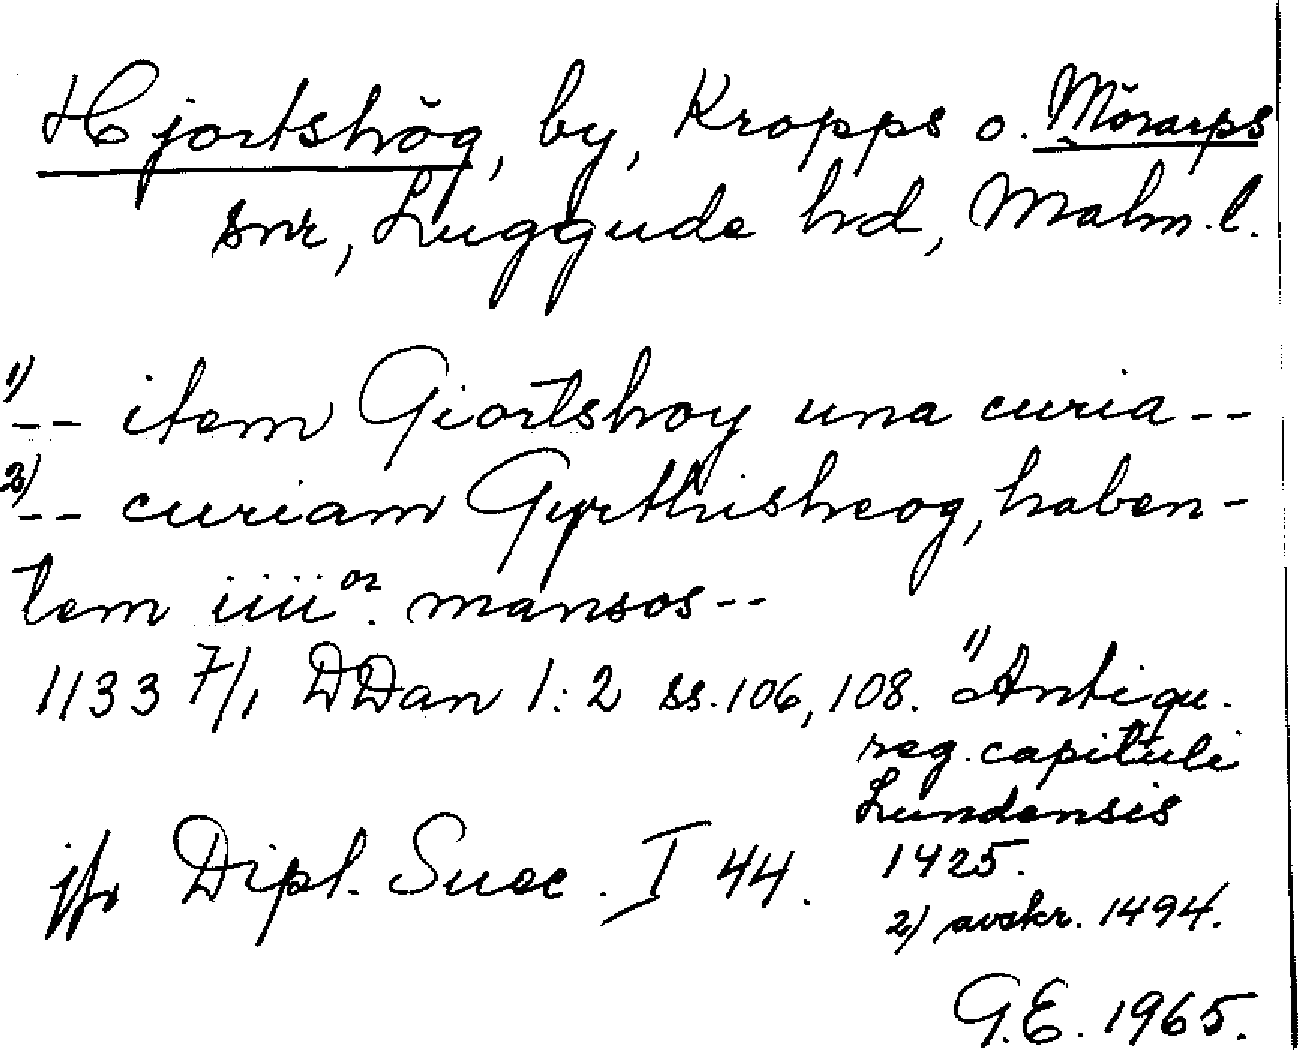 Hjortshög, by, Kropps o. Mörarps
snr, Luggude hd, Malm. l.
1) -- item Giortshoy una curia --
2) -- curiam Gyrthisheog, haben-
tem iiii or. mansos --
1133 7/1 DDan 1:2 ss. 106, 108. 1) Antiqu.
reg. capituli
Lundensis
1425.
jfr Dipl. Suec. I 44.
2) avskr. 1494.
G.E. 1965.